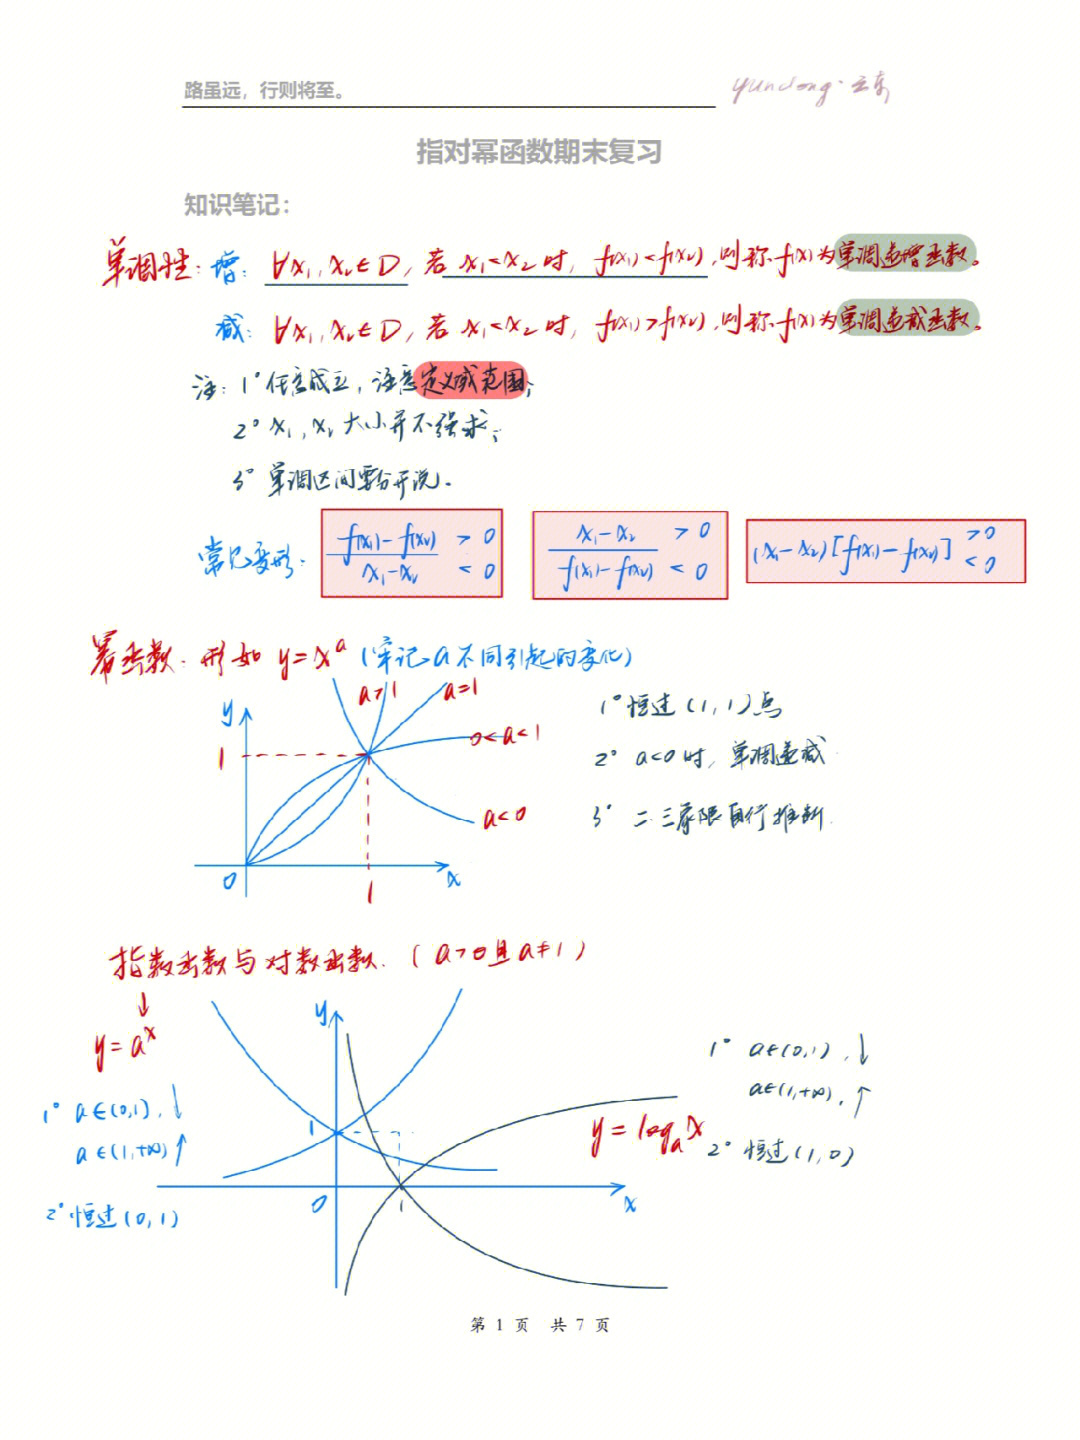 路虽远，行则将至。
yundong·云东
指对幂函数期末复习
知识笔记：
单调性：增：∀x₁,x₂∈D，若x₁<x₂时，f(x₁)<f(x₂)，则称f(x)为单调递增函数。
减：∀x₁,x₂∈D，若x₁<x₂时，f(x₁)>f(x₂)，则称f(x)为单调递减函数。
注：1°任意成立，注意定义域范围；
2°x₁,x₂大小并不强求；
3°单调区间要分开说。
常见变形：
f(x₁)-f(x₂) / x₁-x₂ >0 <0
x₁-x₂ / f(x₁)-f(x₂) >0 <0
(x₁-x₂)[f(x₁)-f(x₂)] >0 <0
幂函数：形如 y=xᵃ（牢记a不同引起的变化）
a>1
a=1
0<a<1
a<0
y
1
0
1
x
1°恒过(1,1)点
2° a<0时，单调递减
3° 二.三象限自行推断.
指数函数与对数函数.(a>0且a≠1)
↓
y=aˣ
1° a∈(0,1),↓
a∈(1,+∞)↑
2°恒过(0,1)
y
1
0
1
x
y=logₐx
1° a∈(0,1),↓
a∈(1,+∞),↑
2° 恒过(1,0)
第 1 页 共 7 页